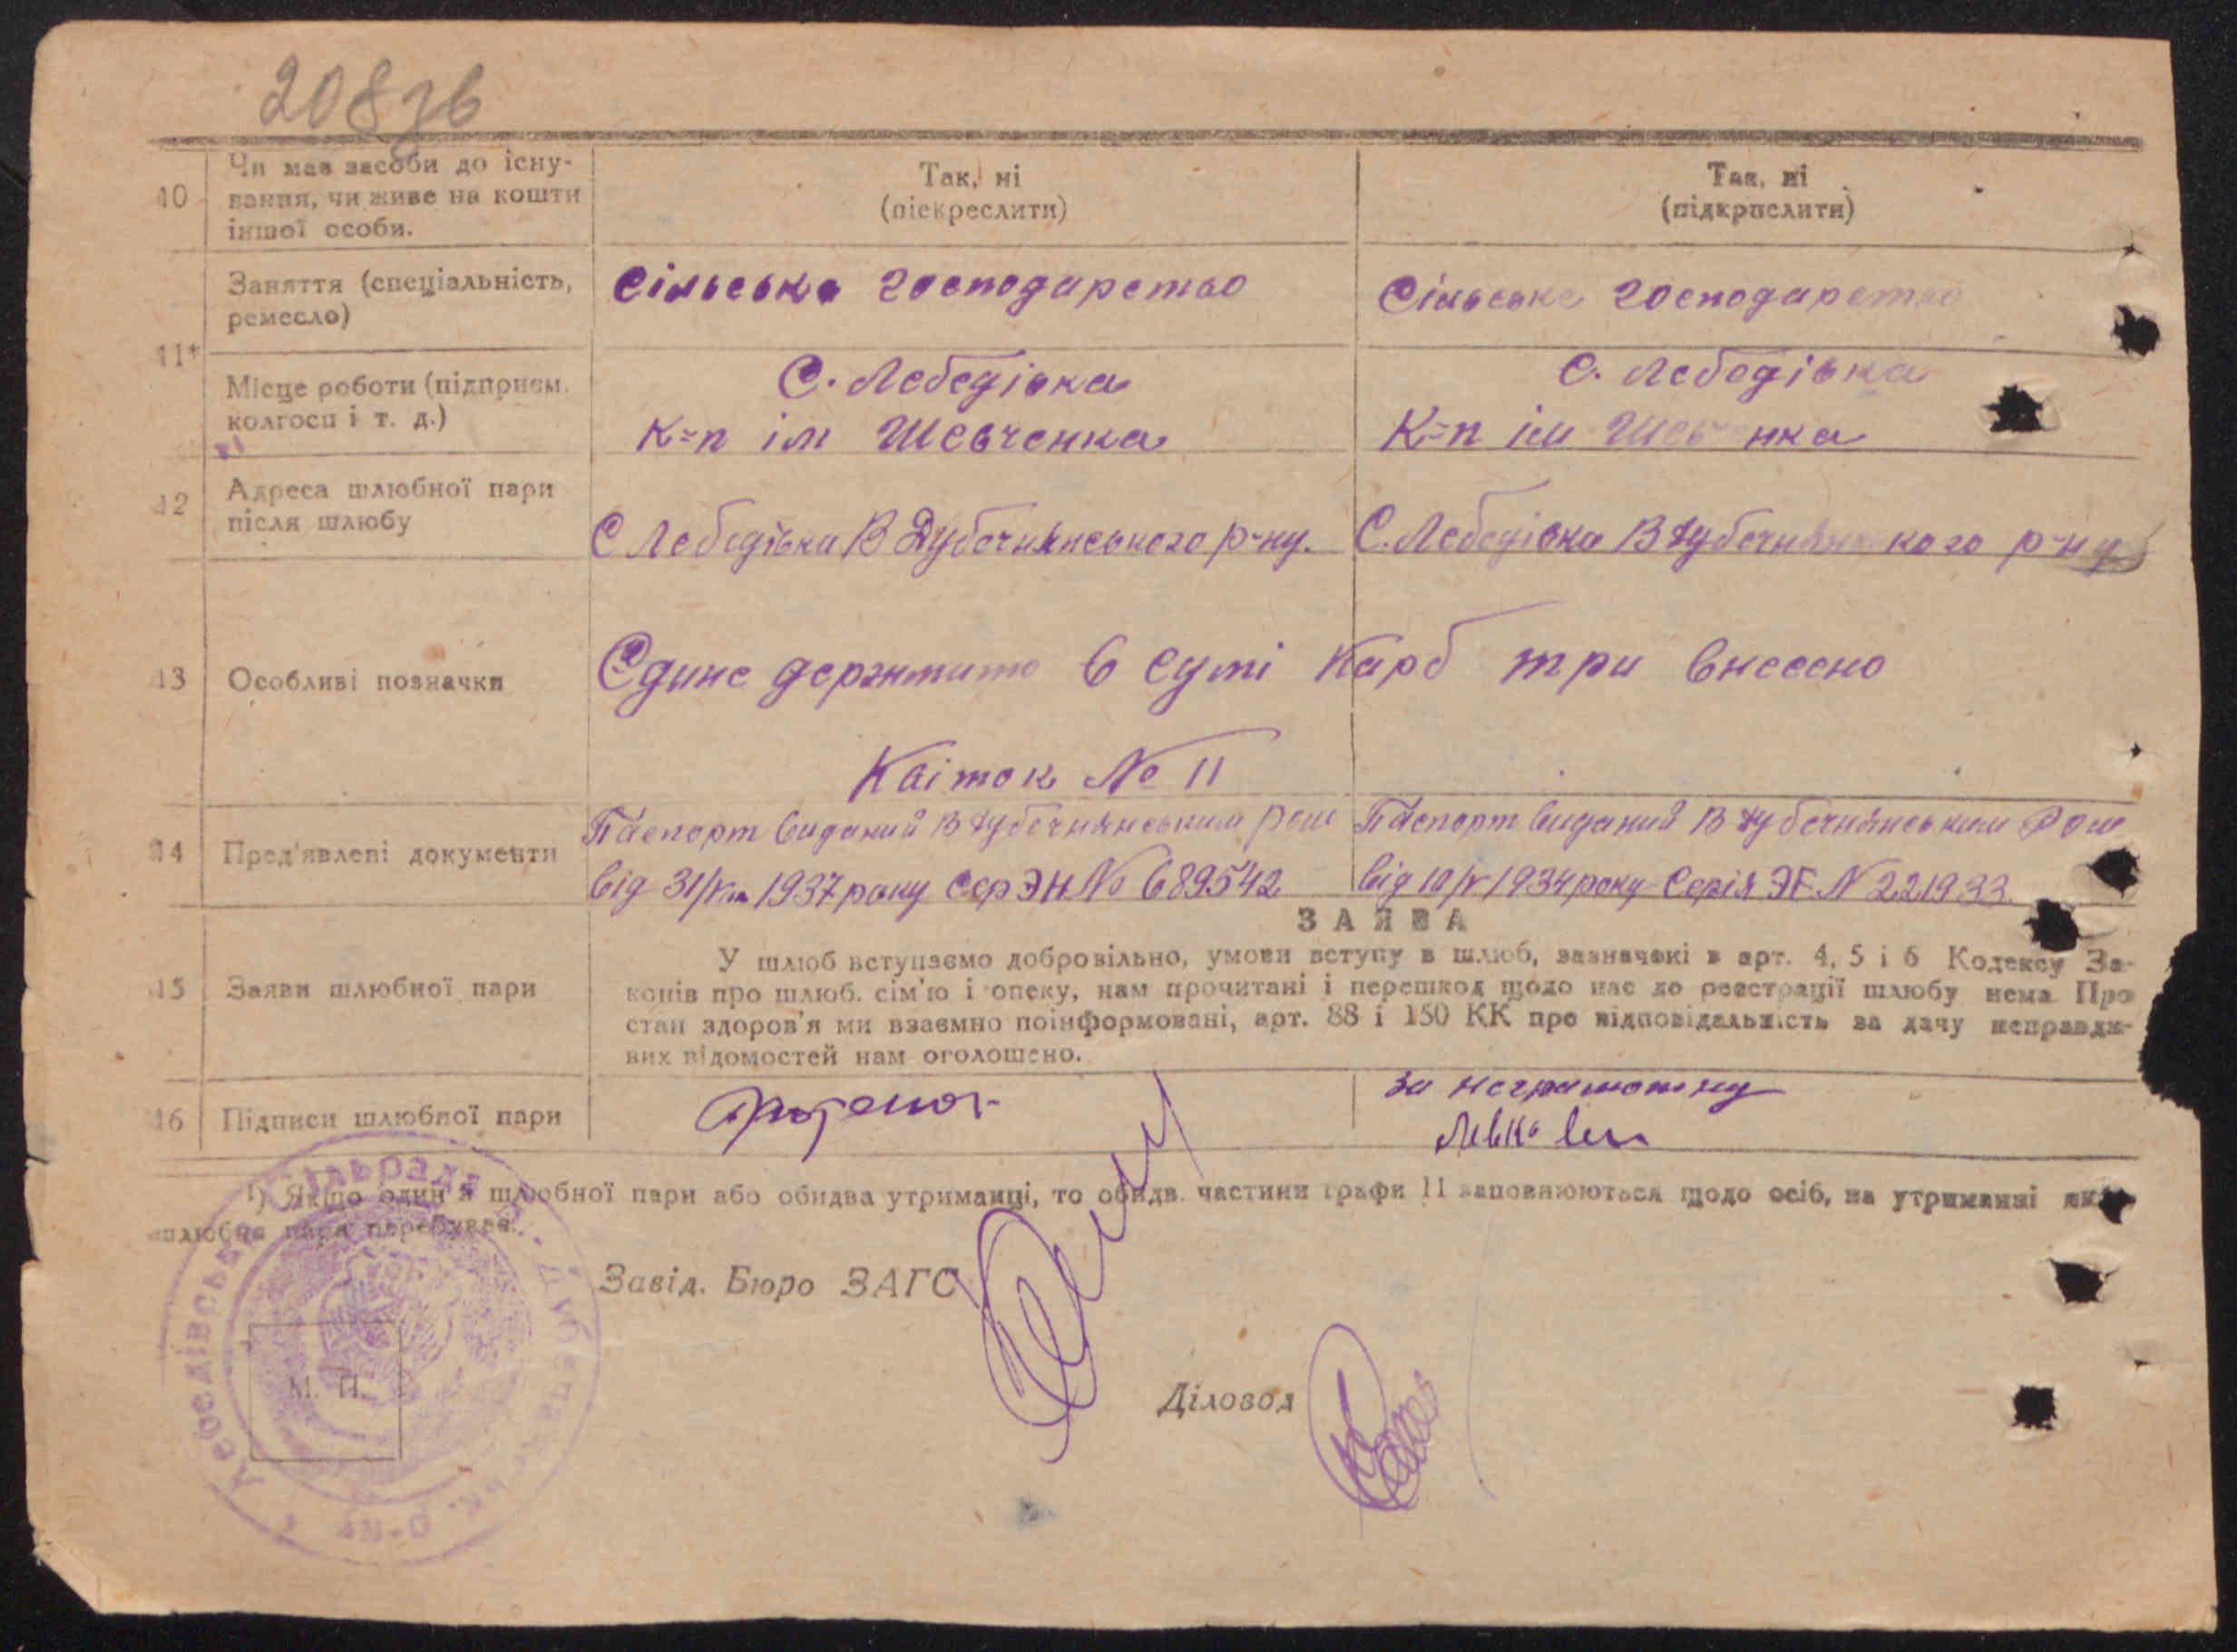 208зв
10
Чи має засоби до існу-
вання, чи живе на кошти
іншої особи.
Так, ні
(піскреслити)
Так, ні
(підкрпслити)
11*
Заняття (спеціальність,
ремесло)
Сільська господарство
Сільське господарство
Місце роботи (підприєм.
колгосп і т. д.)
С. Лебедівка
К=п ім Шевченка
С. Лебедівка
К=п ім Шев нка
12
Адреса шлюбної пари
після шлюбу
С Лебедівка В Дубечнянського р-ну.
С. Лебедівка В Дубечнянського р-ну
13
Особливі позначки
Єдине держмито в сумі карб три внесено
Квіток № 11
14
Пред'явлені документи
Паспорт виданий В Дубечнянським
від 31/ 1937 року Сер ЭН № 689542
Паспорт виданий В Дубечнянським
від 10/V 1934 року Серія ЭГ N 221933
15
Заяви шлюбної пари
ЗАЯВА
У шлюб вступаємо добровільно, умови вступу в шлюб, зазначені в арт. 4, 5 і 6 Кодексу За-
конів про шлюб. сім'ю і опеку, нам прочитані і перешкод щодо нас до реєстрації шлюбу нема Про
стан здоров'я ми взаємно поінформовані, арт. 88 і 150 КК про відповідальність за дачу неправди-
вих відомостей нам оголошено.
16
Підписи шлюбної пари
за неграмотну
¹) Якщо один з шлюбної пари або обидва утриманці, то обидв. частини графи 11 заповнюються щодо осіб, на утриманні яких
шлюбна пара перебуває.
Завід. Бюро ЗАГС
М. П.
Діловод